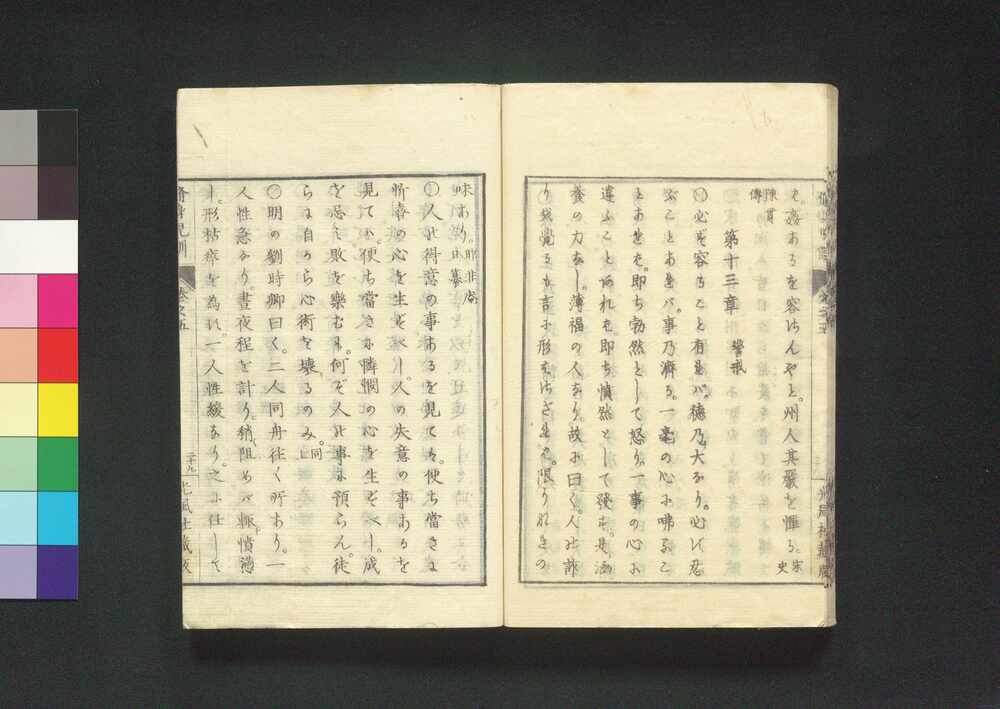 そ。姦あるを容さんやと。州人其嚴を憚る。宋史
陳貫
傳
第十三章　警戒
〇必ず容るゝこと有れバ。德乃ち大なり。必ず忍
ぶことあれバ。事乃ち濟る。一毫の心に咈るこ
とあれを。即ち勃然として怒り。一事の心に
違ふことあれを即ち憤然として發す。是涵
養の力なし。薄福の人なり。故に曰く。人の詐
り我覺るも言に形さゞれを。限りなきの
味あり。昨非庵
日纂
〇人の得意の事あるを見ても。便ち當さに
忻喜の心を生ずべし。人の失意の事あるを
見ても。便ち當さに憐憫の心を生ずべし。成
を忌み敗を樂む。何ぞ人の事に預らん。徒
らに自から心術を壞るのみ。同上
〇明の劉時卿曰く。二人同舟往く所あり。一
人性急なり。晝夜程を計り。稍〻阻めバ輙ち憤懣
し。形枯瘁を為す。一人性緩なり。之に任して
卷之五
二十九